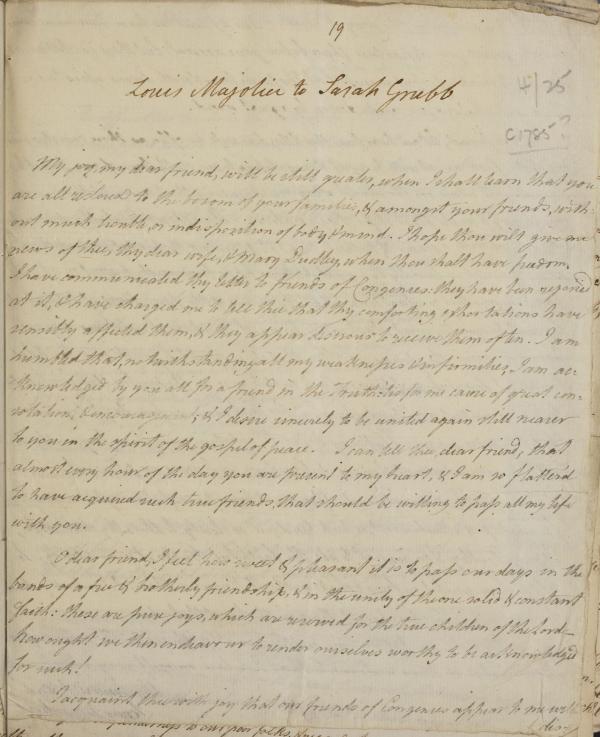 19
Louis Majolier to Sarah Grubb
4/25
C1785?
My joy, my dear friend, will be still greater, when I shall learn that you
are all restored to the bosom of your families, & amongst your friends, with-
out much trouble, or indisposition of body & mind. I hope thou wilt give me
news of thee, thy dear wife, & Mary Dudley, when thou shalt have freedom.
I have communicated thy letter to friends of Congenies: they have been rejoiced
at it, & have charged me to tell thee that thy comforting exhortations have
sensibly affected them, & they appear desirous to receive them often. I am
humbled that, notwithstanding all my weaknesses & infirmities, I am ac-
knowledged by you all for a friend in the Truth: tis for me cause of great con-
solation, & encouragement; & I desire sincerely to be united again still nearer
to you in the spirit of the gospel of peace. I can tell thee, dear friend, that
almost every hour of the day you are present to my heart, & I am so flatter'd
to have acquired such true friends, that should be willing to pass all my life
with you.
O dear friend, I feel how sweet & pleasant it is to pass our days in the
bands of a free & brotherly friendship, & in the unity of the one solid & constant
faith: these are pure joys, which are reserved for the true children of the Lord—
how ought we then endeavour to render ourselves worthy to be acknowledged
for such!
I acquaint thee with joy that our friends of Congenies appear to me well
dis-